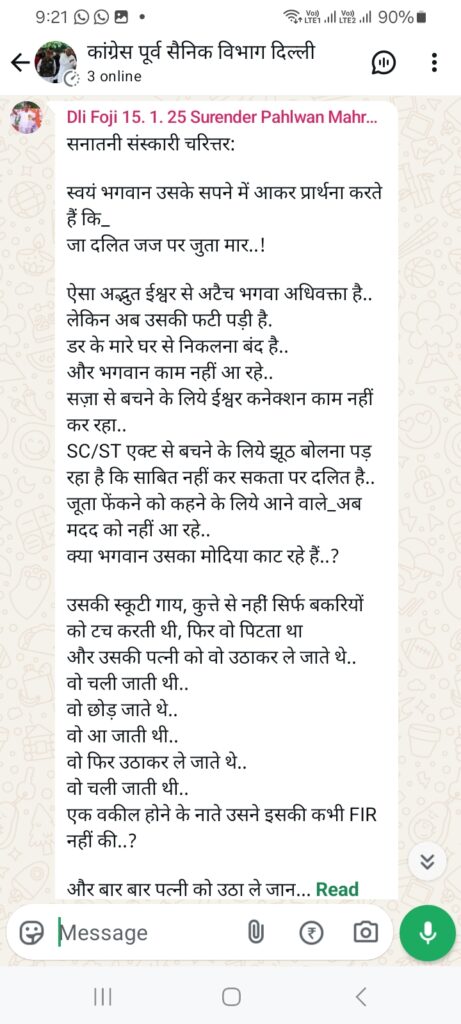 9:21
Vo))
LTE1
Vo))
LTE2
90%
कांग्रेस पूर्व सैनिक विभाग दिल्ली
3 online
Dli Foji 15. 1. 25 Surender Pahlwan Mahr...
सनातनी संस्कारी चरित्तर:
स्वयं भगवान उसके सपने में आकर प्रार्थना करते
हैं कि_
जा दलित जज पर जुता मार..!
ऐसा अद्भुत ईश्वर से अटैच भगवा अधिवक्ता है..
लेकिन अब उसकी फटी पड़ी है.
डर के मारे घर से निकलना बंद है..
और भगवान काम नहीं आ रहे..
सज़ा से बचने के लिये ईश्वर कनेक्शन काम नहीं
कर रहा..
SC/ST एक्ट से बचने के लिये झूठ बोलना पड़
रहा है कि साबित नहीं कर सकता पर दलित है..
जूता फेंकने को कहने के लिये आने वाले_अब
मदद को नहीं आ रहे..
क्या भगवान उसका मोदिया काट रहे हैं..?
उसकी स्कूटी गाय, कुत्ते से नहीं सिर्फ बकरियों
को टच करती थी, फिर वो पिटता था
और उसकी पत्नी को वो उठाकर ले जाते थे..
वो चली जाती थी..
वो छोड़ जाते थे..
वो आ जाती थी..
वो फिर उठाकर ले जाते थे..
वो चली जाती थी..
एक वकील होने के नाते उसने इसकी कभी FIR
नहीं की..?
और बार बार पत्नी को उठा ले जान... Read
Message